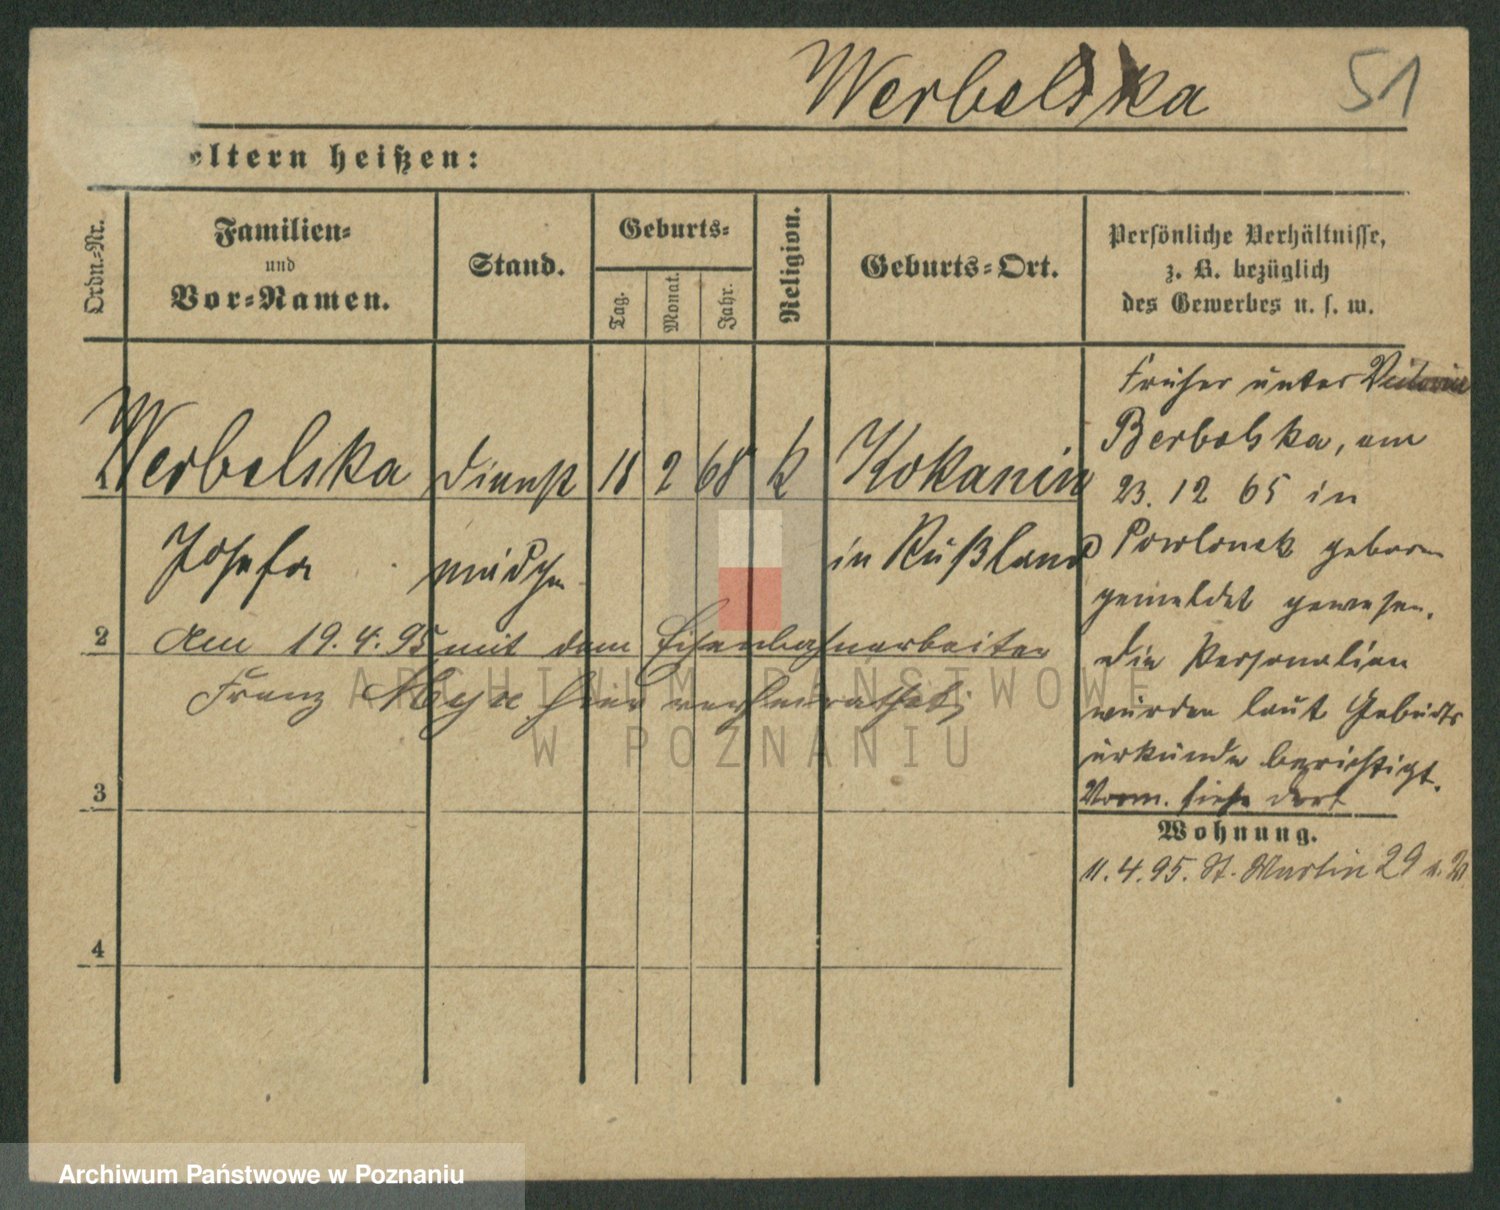 Werbelska 51
eltern heißen:
Ordn.-Nr.
Familien-
und
Vor-Namen.
Stand.
Geburts-
Tag.
Monat.
Jahr.
Religion.
Geburts-Ort.
Persönliche Verhältnisse,
z. B. bezüglich
des Gewerbes u. s. w.
1 Werbelska Dienst 18 2 68 k Kokanin
Josefa mädchen in Rußland
2 Am 19.4.95 mit dem Eisenbahnarbeiter
Franz hier verheirathet;
3
4
Früher unter Victoria
Berbolska, am
23. 12 65 in
Powlonek geboren
gemeldet gewesen.
Die Personalien
wurden laut Geburts
urkunde berichtigt.
Vorm. siehe dort
Wohnung.
11.4.95. St. Martin 29
ARCHIWUM PAŃSTWOWE
W POZNANIU
Archiwum Państwowe w Poznaniu